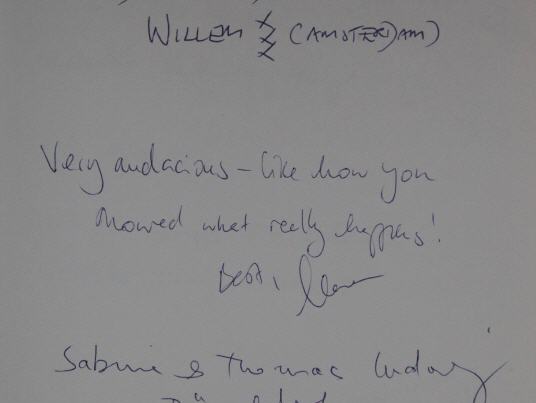 WILLEM XXX (AMSTERDAM)
Very audacious – like how you
showed what really happens!
Best,
Sabine & Thomas